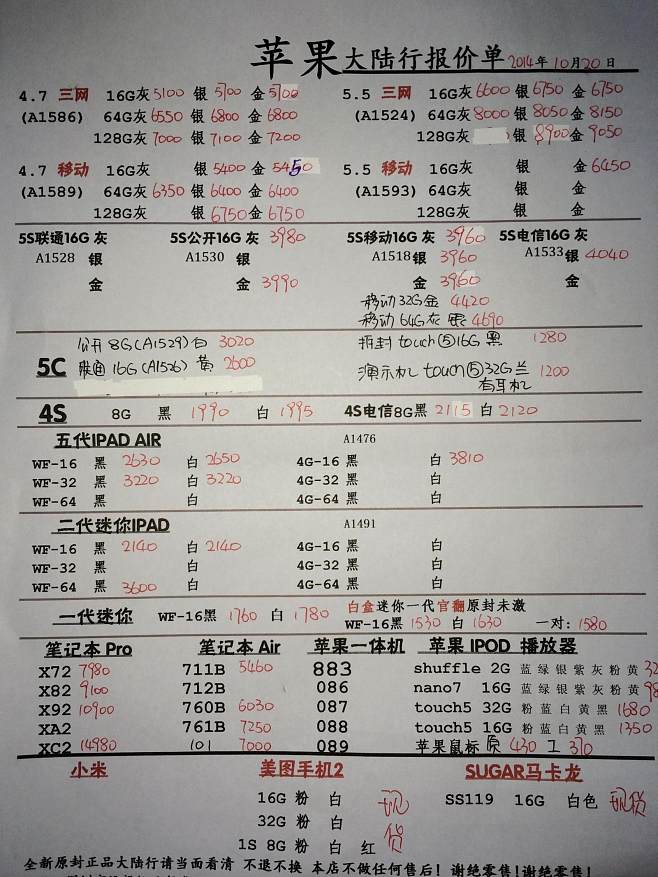 苹果大陆行报价单 2014年10月20日
4.7 三网 16G灰 5100 银 5700 金 5700 5.5 三网 16G灰 6600 银 6750 金 6750
(A1586) 64G灰 6550 银 6800 金 6800 (A1524) 64G灰 8000 银 8050 金 8150
128G灰 7000 银 7100 金 7200 128G灰 银 8900 金 9050
4.7 移动 16G灰 银 5400 金 5450 5.5 移动 16G灰 银 金 6450
(A1589) 64G灰 6350 银 6400 金 6400 (A1593) 64G灰 银 金
128G灰 银 6750 金 6750 128G灰 银 金
5S联通16G 灰 5S公开16G 灰 3980 5S移动16G 灰 3960 5S电信16G 灰
A1528 银 A1530 银 A1518 银 3960 A1533 银 4040
金 金 3990 金 3960
移动32G金 4420
移动64G灰 银 4690
5C 公开8G(A1529)白 3020 拆封touch⑤16G 黑 1280
联通16G(A1526)黄 2600 演示机 touch⑤32G兰 1200
有耳机
4S 8G 黑 1990 白 1995 4S电信8G黑 2115 白 2120
五代IPAD AIR A1476
WF-16 黑 2630 白 2650 4G-16 黑 白 3810
WF-32 黑 3220 白 3220 4G-32 黑 白
WF-64 黑 白 4G-64 黑 白
二代迷你IPAD A1491
WF-16 黑 2140 白 2140 4G-16 黑 白
WF-32 黑 白 4G-32 黑 白
WF-64 黑 3600 白 4G-64 黑 白
一代迷你 WF-16黑 1760 白 1780 白盒迷你一代官翻原封未激
WF-16黑 1530 白 1630 一对: 1580
笔记本 Pro 笔记本 Air 苹果一体机 苹果 IPOD 播放器
X72 7980 711B 5460 883 shuffle 2G 蓝 绿 银 紫 灰 粉 黄
X82 9100 712B 086 nano7 16G 蓝 绿 银 紫 灰 粉 黄
X92 10900 760B 6030 087 touch5 32G 粉 蓝 白 黄 黑 1680
XA2 761B 7250 088 touch5 16G 粉 蓝 白 黄 黑 1350
XC2 14980 101 7000 089 苹果鼠标 原 430 工 370
小米 美图手机2 SUGAR马卡龙
16G 粉 白 现 SS119 16G 白色 现货
32G 粉 白 货
1S 8G 粉 白 红
全新原封正品大陆行请当面看清 不退不换 本店不做任何售后! 谢绝零售!谢绝零售!